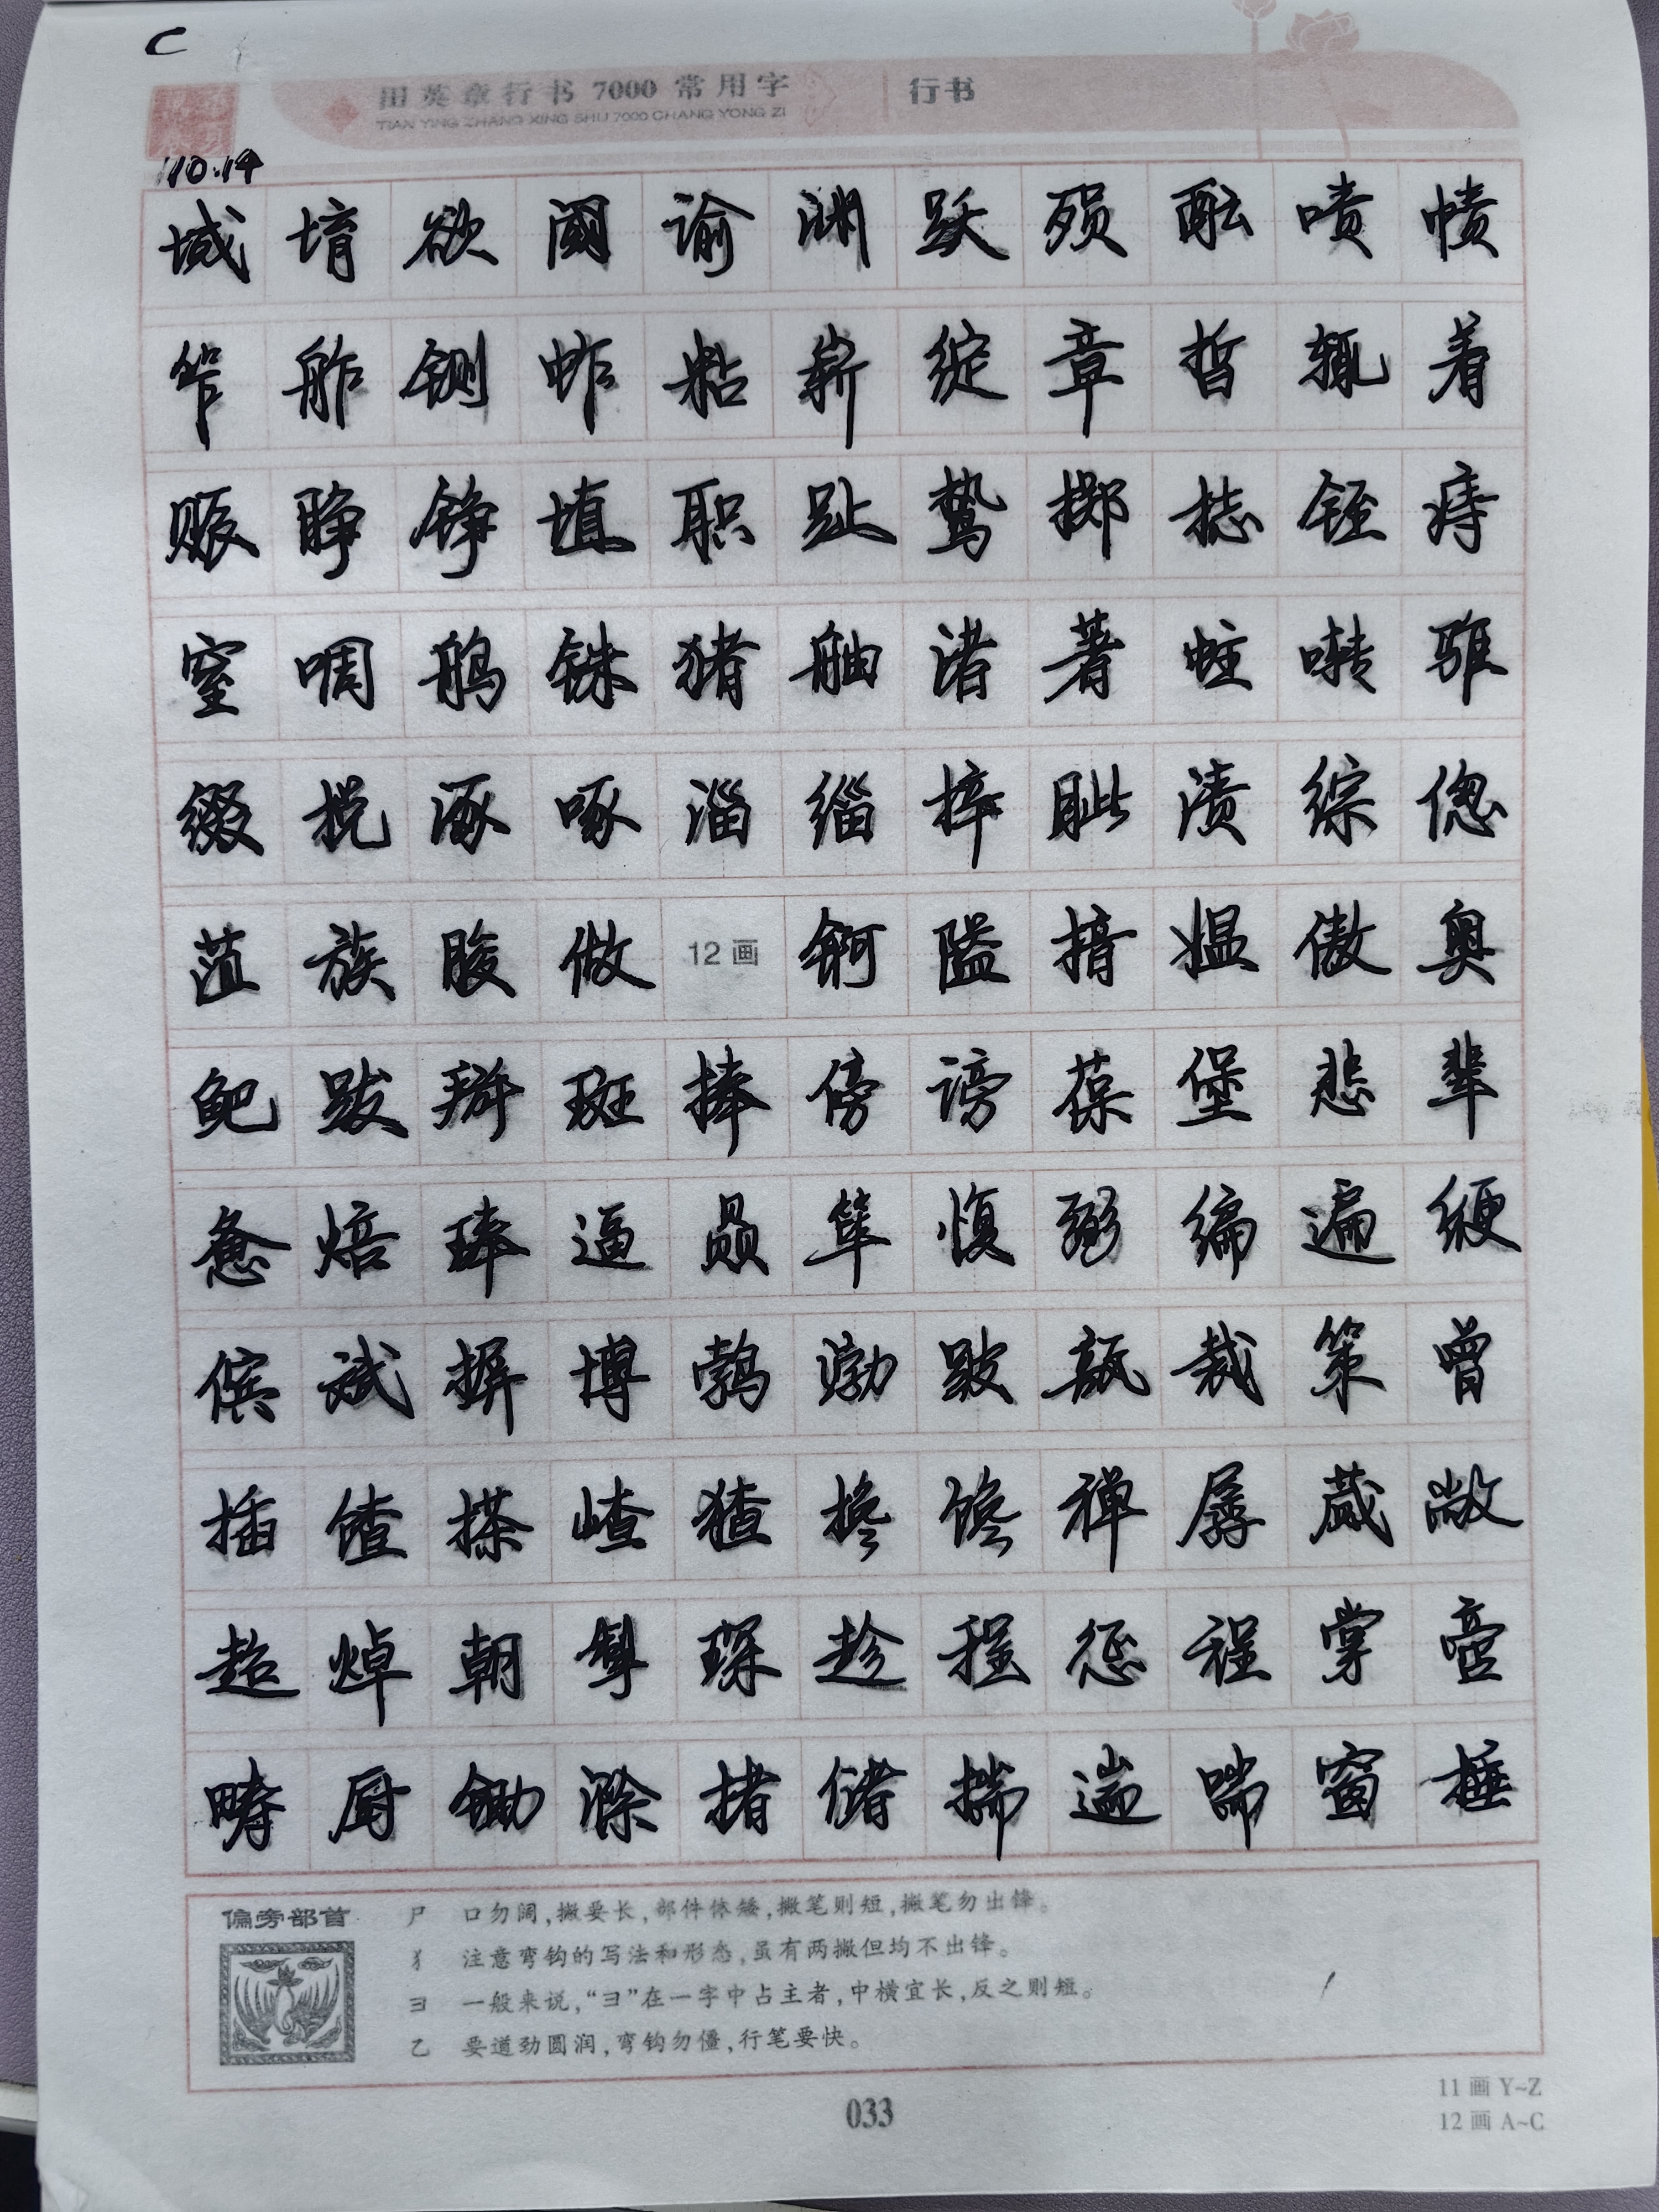 C
田英章行书 7000 常用字 行书
TIAN YING ZHANG XING SHU 7000 CHANG YONG ZI
10.14
域 堉 欲 阈 谕 渊 跃 殒 酝 啧 帻
笮 舴 铡 蚱 粘 崭 绽 章 晢 辄 着
赈 睁 铮 埴 职 趾 鸷 掷 梽 铚 痔
窒 啁 鸼 铢 猪 舳 渚 著 蛀 啭 骓
缀 棁 涿 啄 淄 缁 梓 眦 渍 综 偬
菹 族 脧 做 12 画 锕 隘 揞 媪 傲 奥
鲃 跋 掰 斑 捧 傍 谤 葆 堡 悲 辈
惫 焙 琫 逼 赑 筚 愎 弼 编 遍 缏
傧 斌 摒 博 鹁 渤 跛 瓿 裁 策 曾
插 馇 搽 嵖 猹 搀 馋 禅 孱 蒇 敞
超 焯 朝 琛 趁 惩 程 掌
畴 厨 锄 滁 楮 储 揣 遄 喘 窗 棰
偏旁部首
尸 口勿阔,撇要长,部件体矮,撇笔则短,撇笔勿出锋。
犭 注意弯钩的写法和形态,虽有两撇但均不出锋。
彐 一般来说,“彐”在一字中占主者,中横宜长,反之则短。
乙 要遒劲圆润,弯钩勿僵,行笔要快。
033
11 画 Y~Z
12 画 A~C